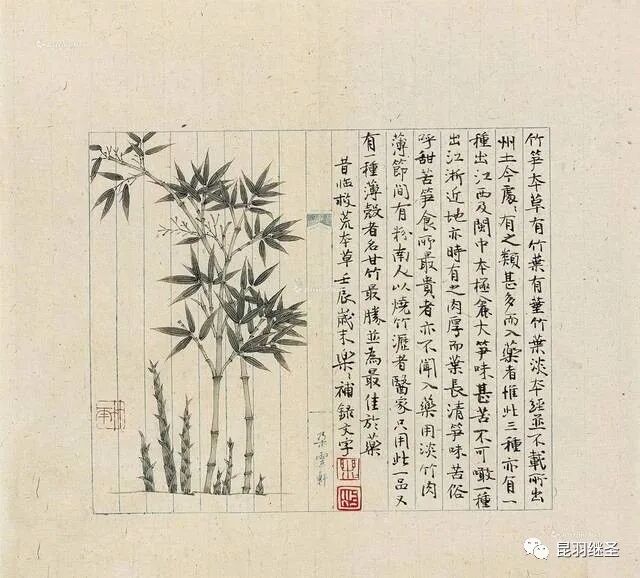 竹笋本草有竹葉有菫竹葉淡本經並不載所出
州土今處〻有之類甚多而入藥者惟此三種亦有一
種出江西及閩中本極麄大笋味甚苦不可噉一種
出江淅近地亦時有之肉厚而葉長清笋味苦俗
呼甜苦笋食所最貴者亦不聞入藥用淡竹肉
薄節間有粉南人以燒竹瀝者醫家只用此一品又
有一種薄殼者名甘竹最勝並為最佳於藥
昔臨救荒本草壬辰歲末樂〻補録文字
朵雲軒
昆羽继圣